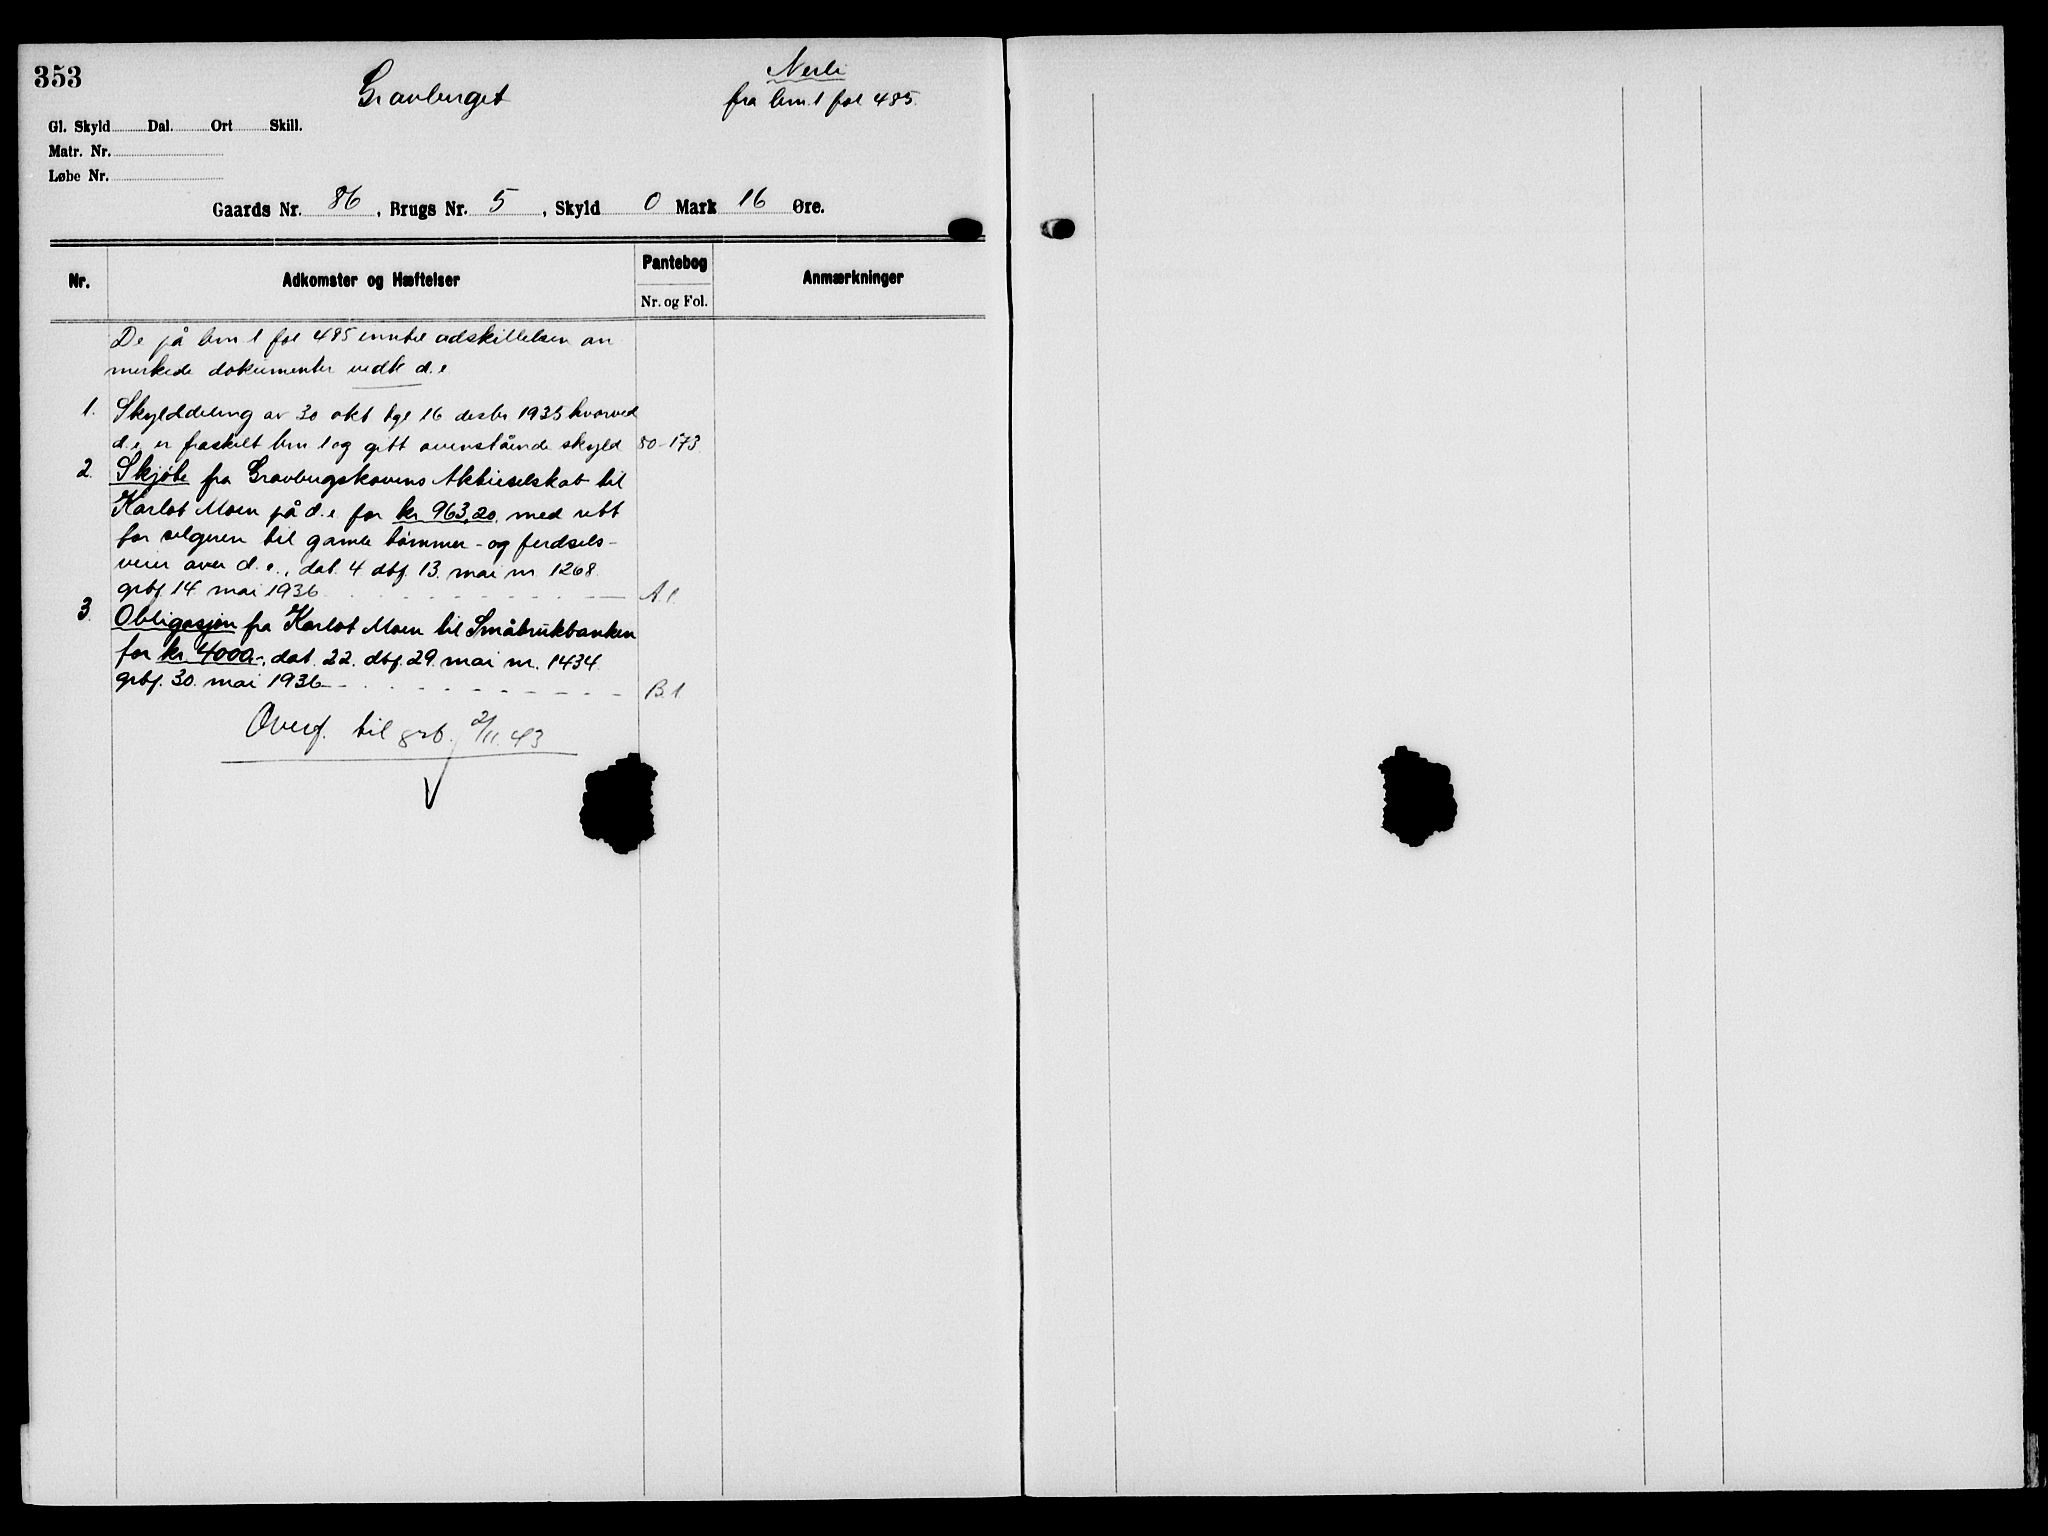 353
Gravberget
Nerli
fra brn. 1 fol 485.
Gl. Skyld Dal. Ort Skill.
Matr. Nr.
Løbe Nr.
Gaards Nr. 86, Brugs Nr. 5, Skyld 0 Mark 16 Øre.
Nr. Adkomster og Hæftelser Pantebog Anmærkninger
Nr. og Fol.
De på brn 1 fol 485 inntil utskillelsen an
merkede dokumenter vedk d.e.
1. Skylddeling av 30 okt tgl 16 desbr 1935 hvorved
d.e. er fraskilt brn 1 og gitt ovenstående skyld 80-173.
2. Skjøte fra Gravbergskovens Aktieselskab til
Karlot Moen på d.e. for kr 963,20. med rett
for selgeren til gamle tømmer- og ferdsels-
veier over d.e., dat. 4 dbf. 13. mai nr. 1268.
grbf. 14. mai 1936 A 1.
3. Obligasjon fra Karlot Moen til Småbrukbanken
for kr 4000.-, dat. 22. dbf. 29. mai nr. 1434.
grbf. 30. mai 1936 B. 1.
Overf. til grb. 2/11.43